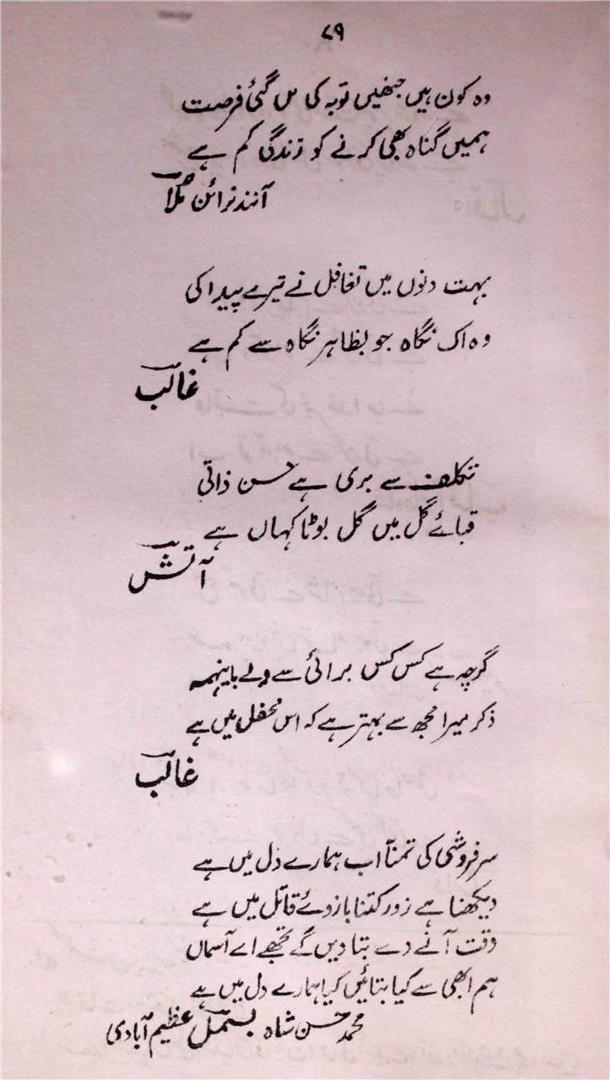 ۷۹
وہ کون ہیں جنھیں توبہ کی مل گئی فرصت
ہمیں گناہ بھی کرنے کو زندگی کم ہے
آنند نرائن ملاؔ
بہت دنوں میں تغافل نے تیرے پیدا کی
وہ اک نگاہ جو بظاہر نگاہ سے کم ہے
غالبؔ
تکلف سے بری ہے حسن ذاتی
قبائے گل میں گل بوٹا کہاں ہے
آتشؔ
گرچہ ہے کس کس برائی سے ولے بایںہمہ
ذکر میرا مجھ سے بہتر ہے کہ اس محفل میں ہے
غالبؔ
سرفروشی کی تمنا اب ہمارے دل میں ہے
دیکھنا ہے زور کتنا بازوئے قاتل میں ہے
وقت آنے دے بتا دیں گے تجھے اے آسماں
ہم ابھی سے کیا بتائیں کیا ہمارے دل میں ہے
محمد حسن شاہ بسملؔ عظیم آبادی